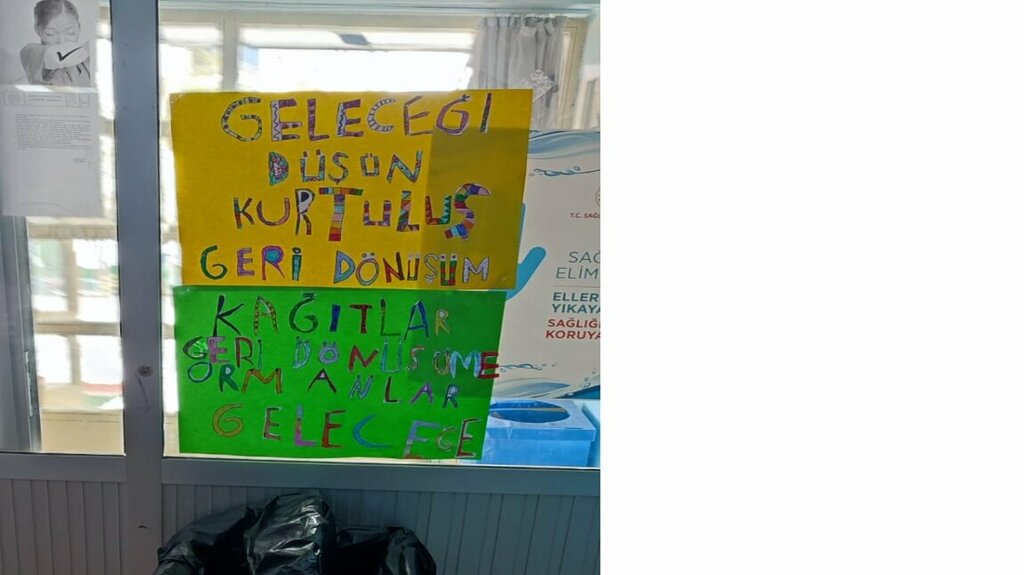 GELECEĞİ
DÜŞÜN
KURTULUŞ
GERİ DÖNÜŞÜM
KAĞITLAR
GERİ DÖNÜŞÜME
ORMANLAR
GELECEĞE
T.C. SAĞL
SAĞ
ELİM
ELLER
YIKAYA
SAĞLIĞI
KORUYA